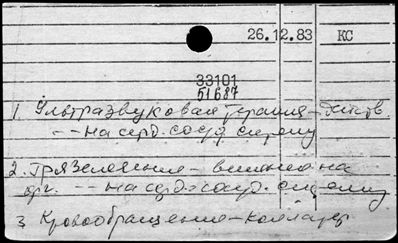 26.12.83 КС
33101
51687
1. Ультразвуковая терапия – действ.
-- на серд.-сосуд. систему
2. Грязелечение – влияние на
орг. -- на серд.-сосуд. систему
3. Кровообращение – коллатер.